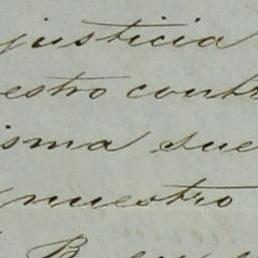 justicia
estro contr
isma sue
nuestro